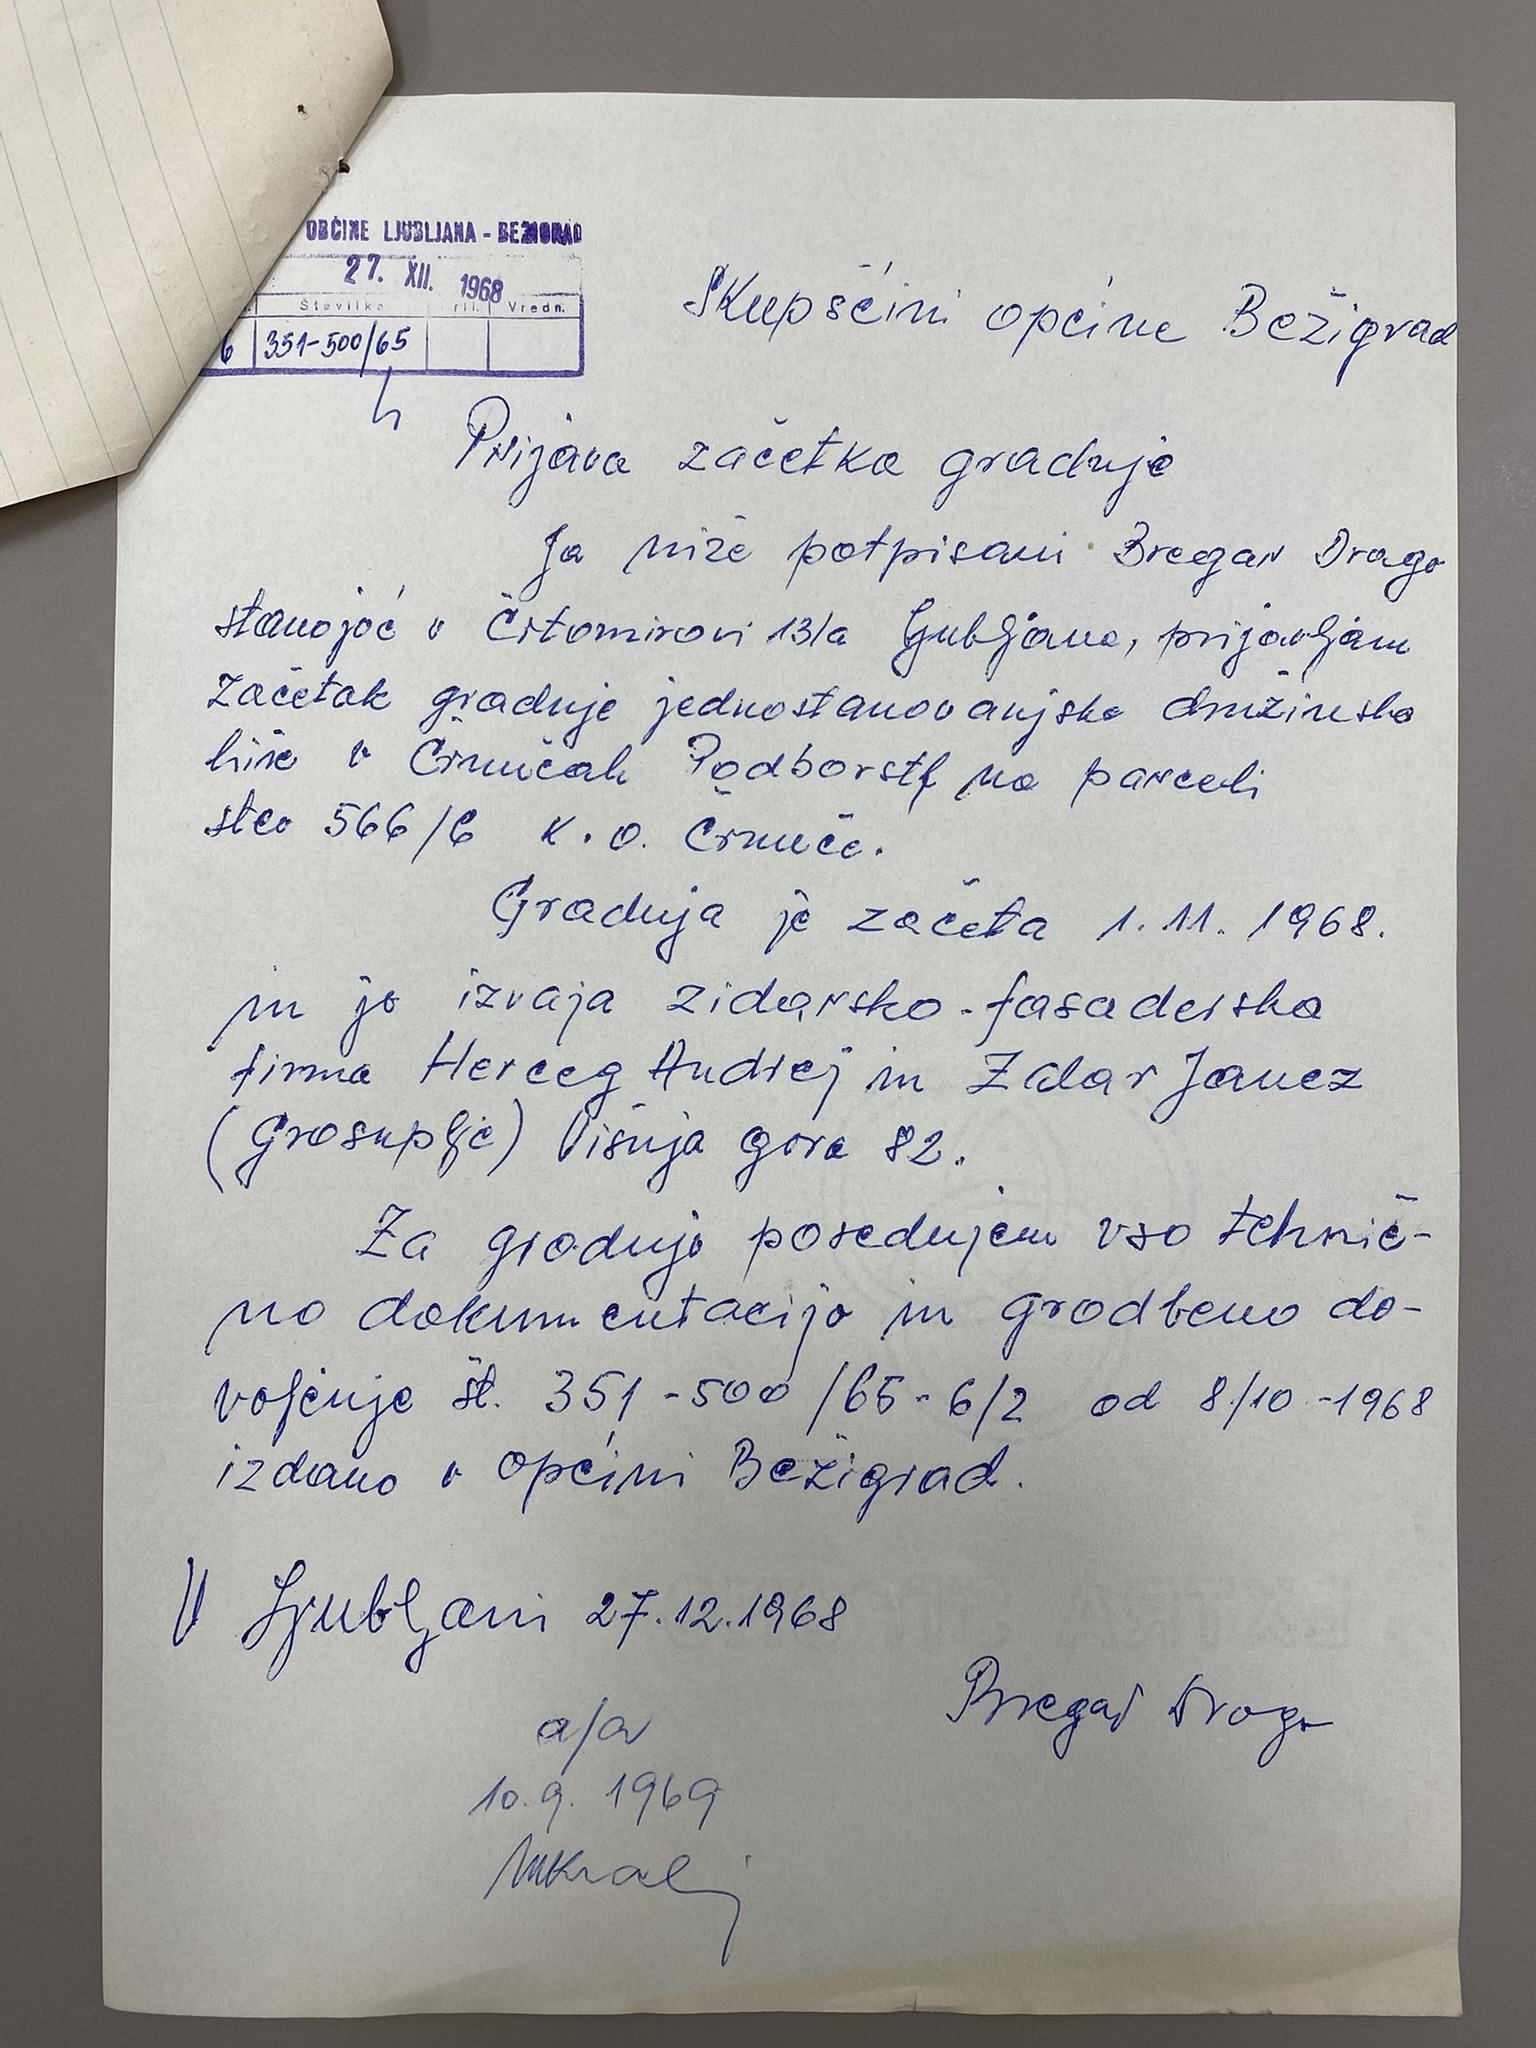 OBČINE LJUBLJANA - BEŽIGRAD
27. XII. 1968
Številka Vredn.
6 351-500/65
Skupšćini općine Bežigrad
Prijava začetka gradnje
Ja niže potpisani Bregar Drago
stanojoć v Črtomirovi 13/a Ljubljana, prijavljam
začetak gradnje jednostanovanjske družinske
hiše v Črnučah Podboršt na parceli
štev 566/6 K.O. Črnuče.
Gradnja je začeta 1.11.1968.
in jo izvaja zidarsko-fasaderska
firma Herceg Andrej in Zdlar Janez
(Grosuplje) Višnja gora 82.
Za gradnjo posedujem vso tehnič-
no dokumentacijo in gradbeno do-
voljenje št. 351-500/65-6/2 od 8/10-1968
izdano v općini Bežigrad.
V Ljubljani 27.12.1968
Bregar Drago
a/a
10.9.1969
MKralj